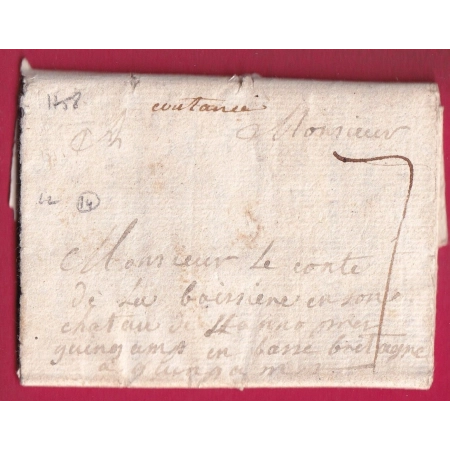 1758
coutance
Monsieur
7
12 14
Monsieur le conte
de la boissiere en son
chatau de
guingamp en basse bretagne
a guingamp